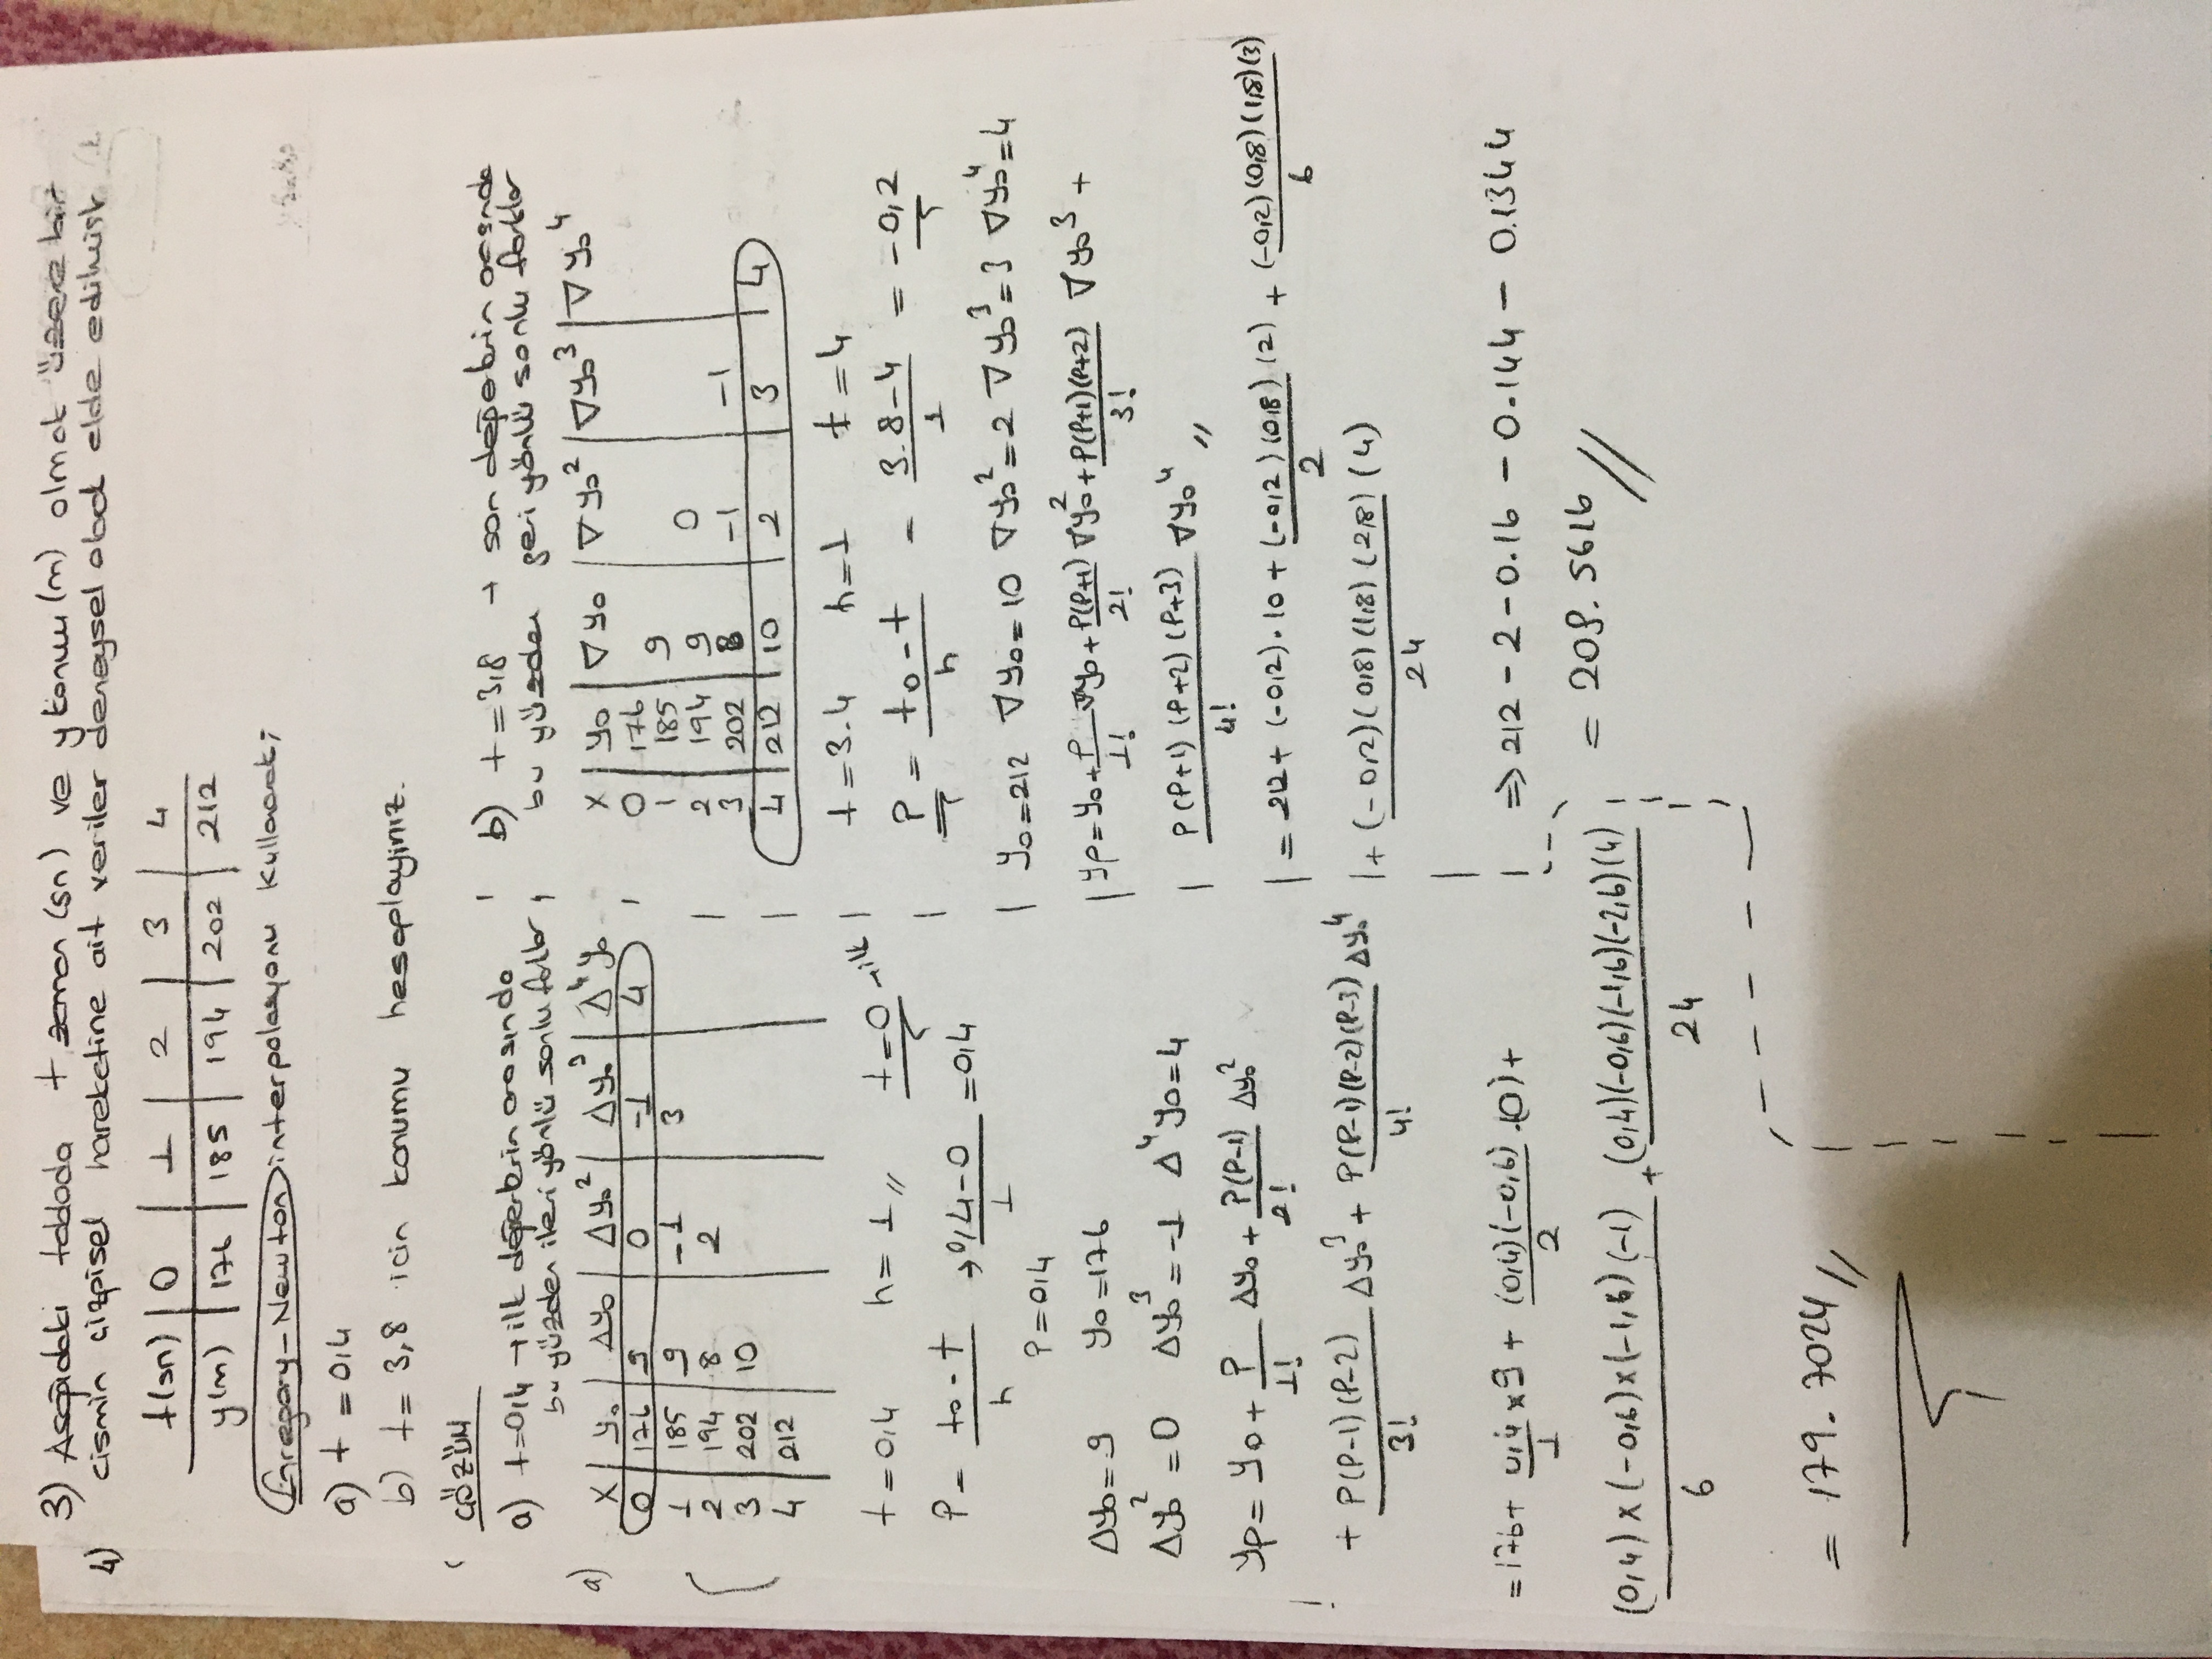 3) Aşağıdaki tabloda t zaman (sn) ve y konumu (m) olmak üzere bir
4) cismin çizgisel hareketine ait veriler deneysel olarak elde edilmişt
t(sn) | 0 | 1 | 2 | 3 | 4
y(m) | 176 | 185 | 194 | 202 | 212
Gregory-Newton interpolasyonu kullanarak;
a) t = 0,4
b) t = 3,8 için konumu hesaplayınız.
ÇÖZÜM
a) t=0,4 → ilk değerlerin arasında
bu yüzden ileri yönlü sonlu farklar
a)
X | y₀ | Δy₀ | Δy₀² | Δy₀³ | Δ⁴y₀
0 | 176 | 9 | 0 | -1 | 4
1 | 185 | 9 | -1 | 3
2 | 194 | 8 | 2
3 | 202 | 10
4 | 212
t = 0,4 h = 1 // t=0 → ilk
P = t₀ - t / h → 0,4-0 / 1 = 0,4
P = 0,4
Δy₀ = 9 y₀ = 176
Δy₀² = 0 Δy₀³ = -1 Δ⁴y₀ = 4
yp = y₀ + P/1! Δy₀ + P(P-1)/2! Δy₀²
+ P(P-1)(P-2)/3! Δy₀³ + P(P-1)(P-2)(P-3)/4! Δy₀⁴
= 176 + 0,4/1 x 9 + (0,4)(-0,6)/2 .(0) +
(0,4)x(-0,6)x(-1,6)(-1)/6 + (0,4)(-0,6)(-1,6)(-2,6)(4)/24
= 179.7024 //
b) t = 3,8 → son değerlerin arasında
bu yüzden geri yönlü sonlu farklar
X | y₀ | ∇y₀ | ∇y₀² | ∇y₀³ | ∇y₀⁴
0 | 176
1 | 185 | 9
2 | 194 | 9 | 0
3 | 202 | 8 | -1 | -1
4 | 212 | 10 | 2 | 3 | 4
t = 3.4 h = 1 t = 4
P = t₀ - t / h = 3.8-4 / 1 = -0,2
y₀ = 212 ∇y₀ = 10 ∇y₀² = 2 ∇y₀³ = 3 ∇y₀⁴ = 4
yp = y₀ + P/1! ∇y₀ + P(P+1)/2! ∇y₀² + P(P+1)(P+2)/3! ∇y₀³ +
P(P+1)(P+2)(P+3)/4! ∇y₀⁴ //
= 212 + (-0,2).10 + (-0,2)(0,8)/2 (2) + (-0,2)(0,8)(1,8)(3)/6
+ (-0,2)(0,8)(1,8)(2,8)/24 (4)
⇒ 212 - 2 - 0.16 - 0.144 - 0.1344
= 209.5616 //